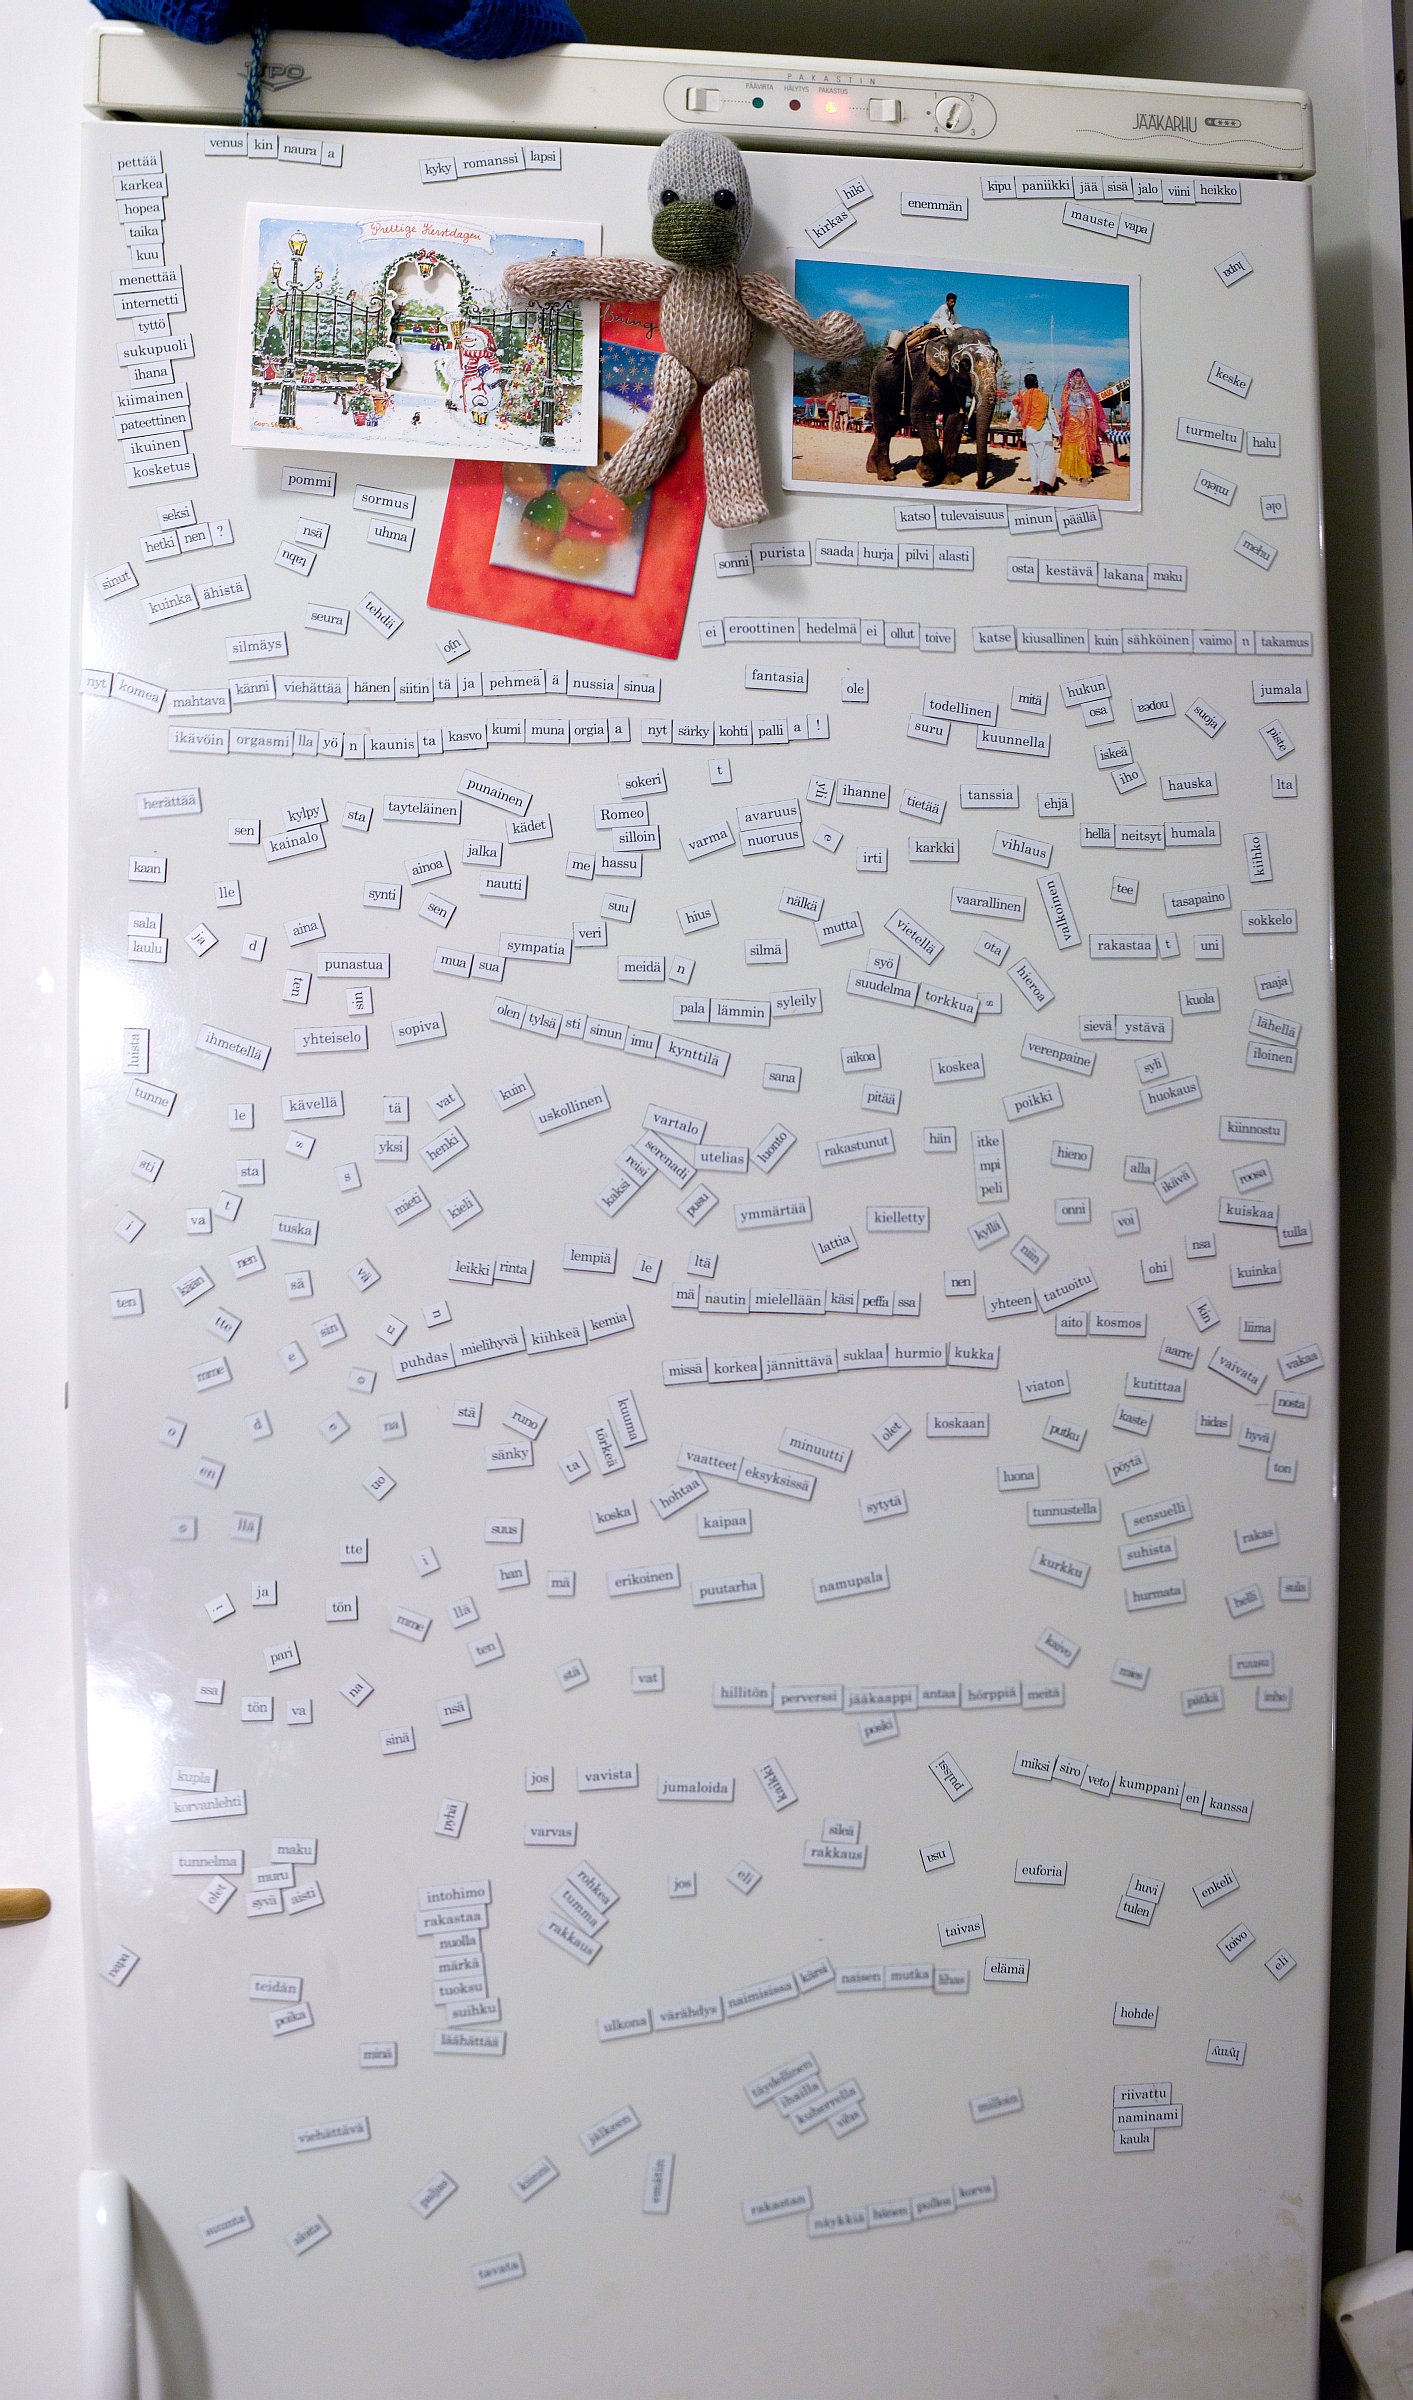 UPO
PAKASTIN
PÄÄVIRTA HÄLYTYS PAKASTUS
1 2 3 4
JÄÄKARHU
venus kin naura a
kyky romanssi lapsi
pettää
karkea
hopea
taika
kuu
menettää
internetti
tyttö
sukupuoli
ihana
kiimainen
pateettinen
ikuinen
kosketus
Prettige Kerstdagen
hiki
kirkas
enemmän
kipu paniikki jää sisä jalo viini heikko
mauste vapa
lupa
keske
turmeltu halu
mieto
ole
mehu
pommi
sormus
seksi
hetki nen ?
nsä
uhma
tabu
sinut
kuinka ähistä
seura
tehdä
silmäys
oin
katso tulevaisuus minun päällä
sonni purista saada hurja pilvi alasti
osta kestävä lakana maku
ei eroottinen hedelmä ei ollut toive
katse kiusallinen kuin sähköinen vaimo n takamus
nyt komea mahtava känni viehättää hänen siitin tä ja pehmeä ä nussia sinua
fantasia
ole
todellinen
mitä
hukun
osa
nopea
suoja
jumala
ikävöin orgasmi lla yö n kaunis ta kasvo kumi muna orgia a
nyt särky kohti palli a !
suru
kuunnella
iskeä
piste
herättää
punainen
sokeri
t
ihanne
tietää
tanssia
ehjä
iho
hauska
lta
kylpy
sta
täyteläinen
sen
kainalo
kädet
Romeo
silloin
varma
avaruus
nuoruus
e
irti
karkki
vihlaus
hellä neitsyt humala
kiihko
kaan
ainoa
jalka
me hassu
lle
synti
nautti
sen
suu
hius
nälkä
mutta
vaarallinen
valkoinen
tee
tasapaino
sala
laulu
ja
d
aina
sympatia
veri
silmä
vietellä
ota
rakastaa t
uni
sokkelo
punastua
mua sua
meidä n
syö
hieroa
ten
sin
suudelma torkkua s
kuola
raaja
olen tylsä sti sinun imu kynttilä
pala lämmin syleily
sievä ystävä
lähellä
iloinen
luista
ihmetellä
yhteiselo
sopiva
aikoa
koskea
verenpaine
syli
tunne
sana
pitää
poikki
huokaus
le
kävellä
tä
vat
kuin
uskollinen
vartalo
kiinnostu
s
yksi
henki
serenadi
utelias
luonto
rakastunut
hän
itke
mpi
peli
hieno
alla
ikävä
roosa
sti
sta
s
reisi
kaksi
pusu
t
mieti
kieli
ymmärtää
kielletty
onni
voi
kuiskaa
tulla
i
va
tuska
lattia
kyllä
niin
nsa
nen
leikki rinta
lempiä
le
ltä
ohi
kuinka
kään
sä
vä
ten
mä nautin mielellään käsi peffa ssa
nen
yhteen tatuoitu
kin
tte
sin
u
n
puhdas mielihyvä kiihkeä kemia
aito kosmos
liima
mme
e
o
missä korkea jännittävä suklaa hurmio kukka
aarre
vaivata
vakaa
viaton
kutittaa
nosta
o
d
na
stä
runo
kuuma
törkeä
minuutti
olet
koskaan
putku
kaste
hidas
hyvä
sänky
ta
vaatteet eksyksissä
luona
pöytä
ton
en
uo
koska
hohtaa
kaipaa
sytytä
tunnustella
sensuelli
rakas
llä
suus
tte
i
han
mä
erikoinen
puutarha
namupala
kurkku
suhista
hurmata
helli
sula
ja
tön
mme
llä
pari
ten
kaivo
mies
ruusu
ssa
tön
va
na
nsä
stä
vat
hillitön perverssi jääkaappi antaa hörppiä meitä
pätkä
inho
sinä
poski
kupla
korvanlehti
jos
vavista
jumaloida
kaikki
pulssi
miksi siro veto kumppani en kanssa
pyhä
varvas
sileä
rakkaus
tunnelma
maku
muru
olet
syvä
aisti
asu
euforia
huvi
tulen
enkeli
intohimo
rakastaa
nuolla
märkä
tuoksu
suihku
läähättää
rohkea
tumma
rakkaus
jos
eli
taivas
toivo
eli
napa
elämä
teidän
poika
ulkona värähdys naimisissa kärsi naisen mutka lihas
hohde
minä
hymy
täydellinen
ihailla
kuherrella
viha
milloin
riivattu
naminami
kaula
viehättävä
jälkeen
kiimni
suunta
rakastan näykkiä hänen pullea korva